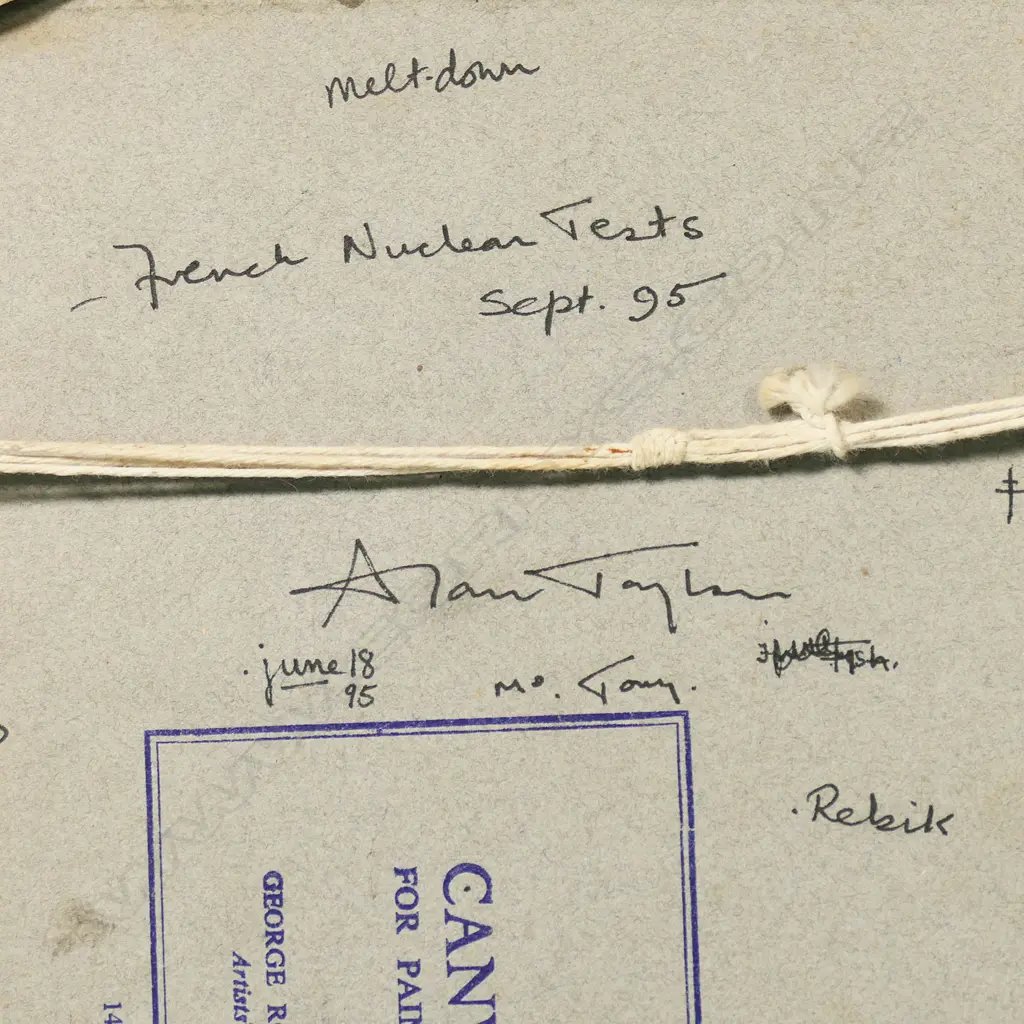 melt-down
- French Nuclear Tests
Sept. 95
Alan Taylor
. june 18
95
Mo. Tony.
. Rebik
CANV
FOR PAIN
GEORGE R
Artists'
14